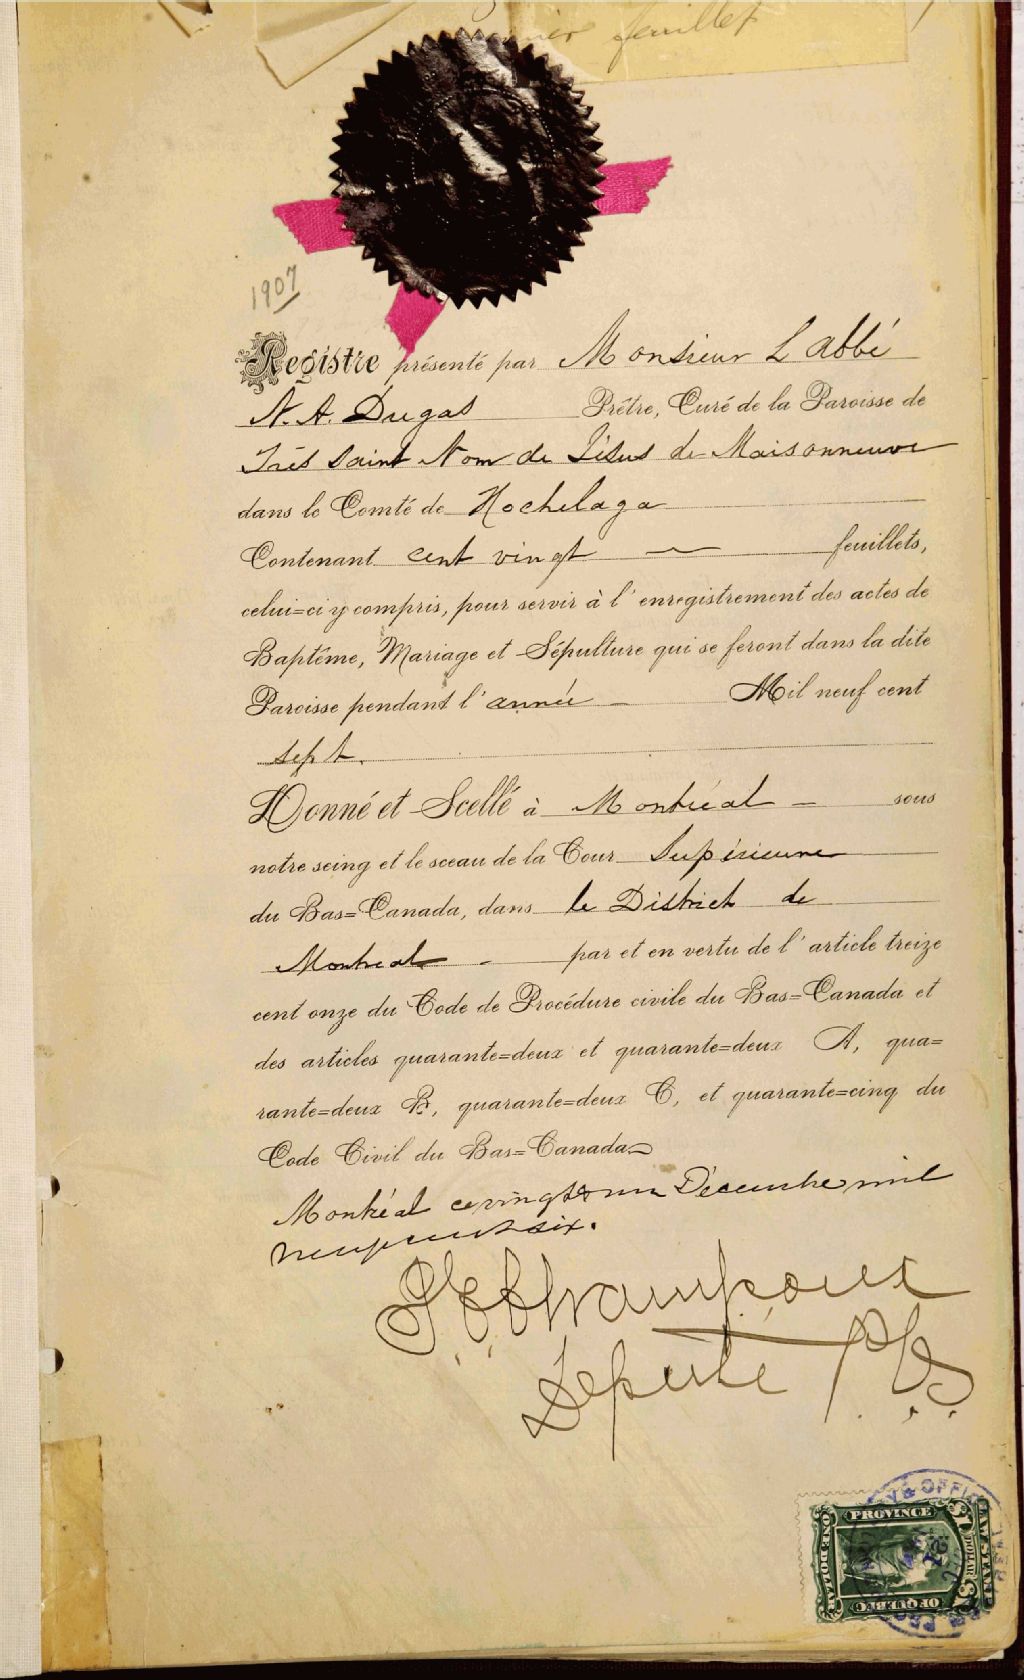 feuillet
1907
Registre présenté par Monsieur L'abbé
N. A. Dugas Prêtre, Curé de la Paroisse de
Très Saint Nom de Jésus de Maisonneuve
dans le Comté de Hochelaga
Contenant cent vingt feuillets,
celui=ci y compris, pour servir à l'enregistrement des actes de
Baptême, Mariage et Sépulture qui se feront dans la dite
Paroisse pendant l'année Mil neuf cent
sept.
Donné et Scellé à Montréal sous
notre seing et le sceau de la Cour Supérieure
du Bas=Canada, dans le District de
Montreal par et en vertu de l'article treize
cent onze du Code de Procédure civile du Bas=Canada et
des articles quarante=deux et quarante=deux A, qua=
rante=deux B, quarante=deux C, et quarante=cinq du
Code Civil du Bas=Canada
Montréal ce vingt et un Décembre mil
neuf cent six.
Député P.C.S.
PROVINCE
QUEBEC
ONE DOLLAR
DOLLAR
LAW STAMP